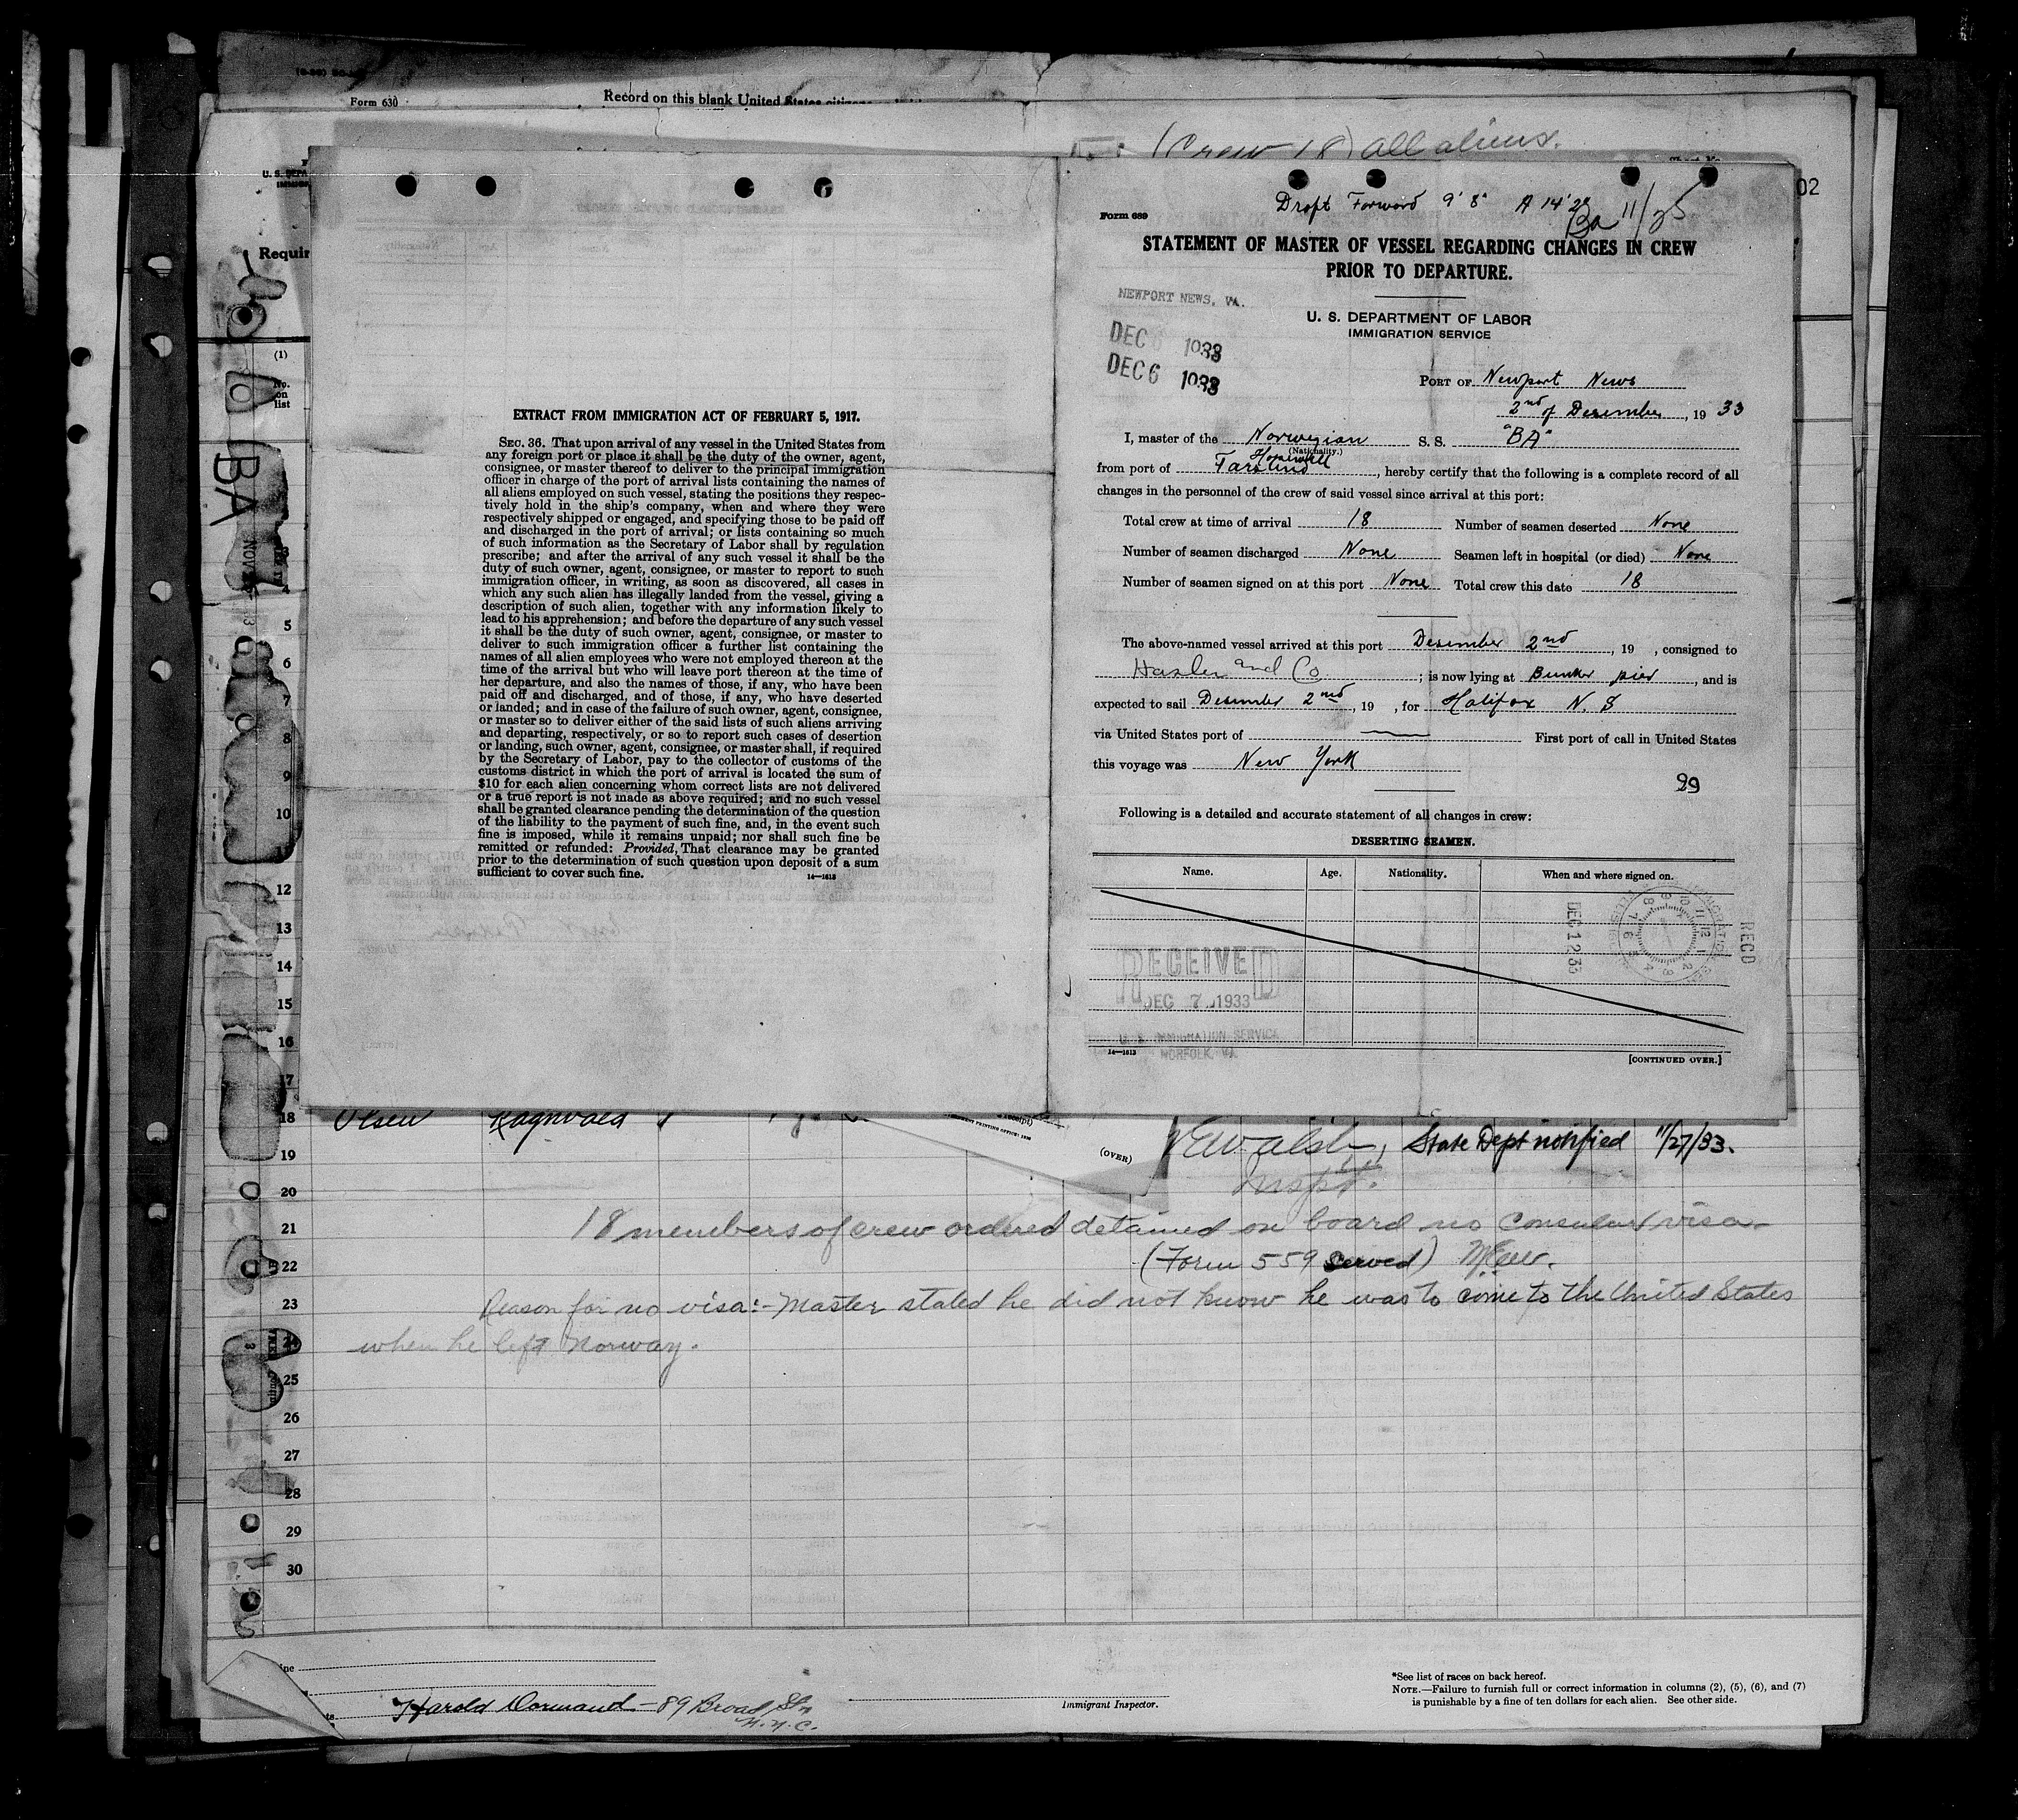 Form 630
Record on this blank United States
(Crew 18) all aliens.
02
Requir
(1)
No.
on
list
BA
EXTRACT FROM IMMIGRATION ACT OF FEBRUARY 5, 1917.
SEC. 36. That upon arrival of any vessel in the United States from
any foreign port or place it shall be the duty of the owner, agent,
consignee, or master thereof to deliver to the principal immigration
officer in charge of the port of arrival lists containing the names of
all aliens employed on such vessel, stating the positions they respec-
tively hold in the ship's company, when and where they were
respectively shipped or engaged, and specifying those to be paid off
and discharged in the port of arrival; or lists containing so much
of such information as the Secretary of Labor shall by regulation
prescribe; and after the arrival of any such vessel it shall be the
duty of such owner, agent, consignee, or master to report to such
immigration officer, in writing, as soon as discovered, all cases in
which any such alien has illegally landed from the vessel, giving a
description of such alien, together with any information likely to
lead to his apprehension; and before the departure of any such vessel
it shall be the duty of such owner, agent, consignee, or master to
deliver to such immigration officer a further list containing the
names of all alien employees who were not employed thereon at the
time of the arrival but who will leave port thereon at the time of
her departure, and also the names of those, if any, who have been
paid off and discharged, and of those, if any, who have deserted
or landed; and in case of the failure of such owner, agent, consignee,
or master so to deliver either of the said lists of such aliens arriving
and departing, respectively, or so to report such cases of desertion
or landing, such owner, agent, consignee, or master shall, if required
by the Secretary of Labor, pay to the collector of customs of the
customs district in which the port of arrival is located the sum of
$10 for each alien concerning whom correct lists are not delivered
or a true report is not made as above required; and no such vessel
shall be granted clearance pending the determination of the question
of the liability to the payment of such fine, and, in the event such
fine is imposed, while it remains unpaid; nor shall such fine be
remitted or refunded: Provided, That clearance may be granted
prior to the determination of such question upon deposit of a sum
sufficient to cover such fine.
14—1613
Draft Forward 9' 8" A 14' 2"
Ba 11/25
Form 689
STATEMENT OF MASTER OF VESSEL REGARDING CHANGES IN CREW
PRIOR TO DEPARTURE.
NEWPORT NEWS, VA.
U. S. DEPARTMENT OF LABOR
IMMIGRATION SERVICE
DEC 6 1933
DEC 6 1933
PORT OF Newport News
2nd of Desember, 19 33
I, master of the Norwegian S. S. "BA"
(Nationality.)
Hopewell
from port of , hereby certify that the following is a complete record of all
changes in the personnel of the crew of said vessel since arrival at this port:
Total crew at time of arrival 18 Number of seamen deserted None
Number of seamen discharged None Seamen left in hospital (or died) None
Number of seamen signed on at this port None Total crew this date 18
The above-named vessel arrived at this port Desember 2nd, 19 , consigned to
Hasler and Co ; is now lying at Bunker pier, and is
expected to sail Desember 2nd, 19 , for Halifax N. S
via United States port of First port of call in United States
this voyage was New York
99
Following is a detailed and accurate statement of all changes in crew:
DESERTING SEAMEN.
Name. Age. Nationality. When and where signed on.
DEC 12 33
REC'D
RECEIVED
DEC 7 1933
U. S. IMMIGRATION SERVICE
NORFOLK, VA.
14—1613
[CONTINUED OVER.]
4
5
6
7
8
9
10
12
13
14
15
16
17
18 Olsen Ragnvald
(OVER)
State Dept notified 11/27/33.
Inspt.
19
20
21 18 members of crew ordered detained on board no consular visa
22 (Form 559 served) MEW.
23 Reason for no visa:- Master stated he did not know he was to come to the United States
24 when he left Norway.
25
26
27
28
29
30
*See list of races on back hereof.
NOTE.—Failure to furnish full or correct information in columns (2), (5), (6), and (7)
is punishable by a fine of ten dollars for each alien. See other side.
Immigrant Inspector.
Harold Dormand – 89 Broad St
N.Y.C.